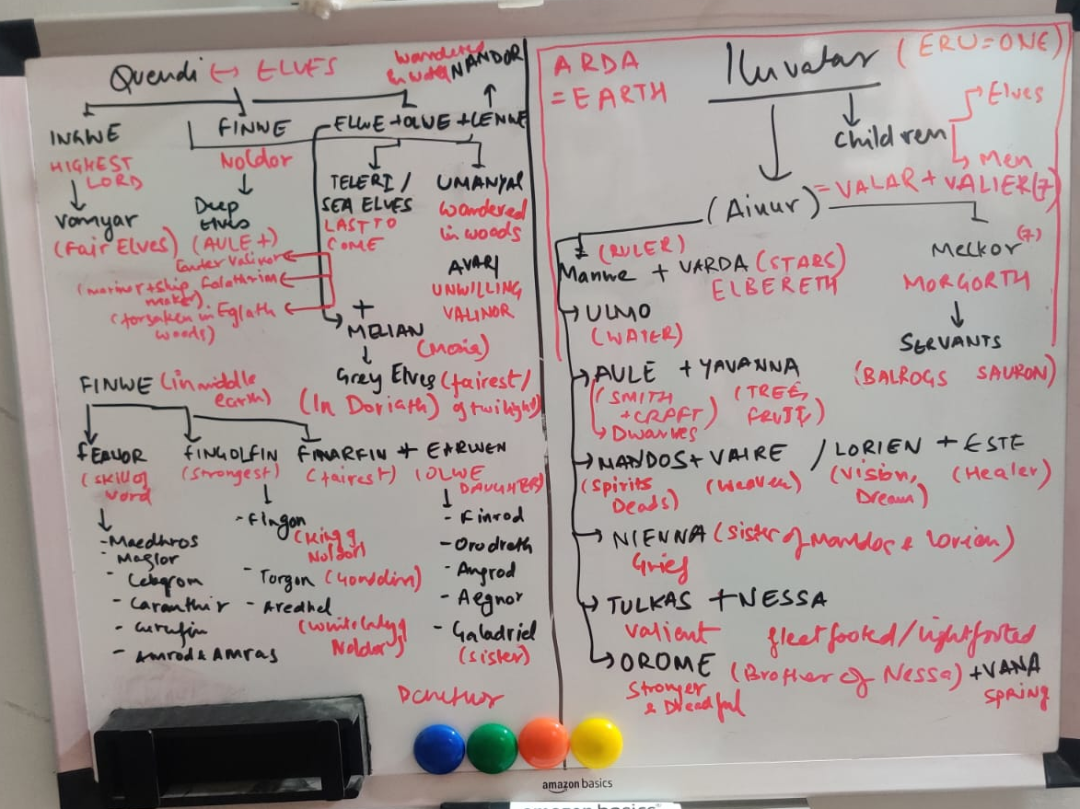 Quendi ↔ ELVES
wandered
in water NANDOR
INGWE
HIGHEST
LORD
Vannyar
(Fair Elves)
FINWE
Noldor
Deep
Elves
(AULE +)
ELWE + OLWE + LENWE
TELERI /
SEA ELVES
LAST TO
COME
UMANYAR
Wandered
in woods
AVARI
UNWILLING
VALINOR
Enter Valinor
(mariner + ship Falathrim
maker)
(forsaken in Eglath
woods)
+
MELIAN
(Maia)
Grey Elves (fairest /
(In Doriath) of twilight)
FINWE (in middle
earth)
FEANOR
(Skill of
Word)
- Maedhros
- Maglor
- Celegrom
- Caranthir
- Curufin
- Amrod & Amras
FINGOLFIN
(Strongest)
- Fingon
(King of
Noldor)
- Turgon (Gonddlin)
- Aredhel
(White Lady of
Noldor)
FINARFIN + EARWEN
(fairest) (OLWE
DAUGHTER)
- Finrod
- Orodreth
- Angrod
- Aegnor
- Galadriel
(sister)
ARDA
= EARTH
Iluvatar (ERU = ONE)
Children
Elves
Men
(Ainur) = VALAR + VALIER (7)
(RULER)
Manwe + VARDA (STARS)
ELBERETH
Melkor (7)
MORGORTH
SERVANTS
(BALROGS SAURON)
ULMO
(WATER)
AULE + YAVANNA
(SMITH
+ CRAFT)
Dwarves
(TREE,
FRUIT)
MANDOS + VAIRE / LORIEN + ESTE
(Spirits
Deads)
(Weaver)
(Vision,
Dream)
(Healer)
NIENNA (Sister of Mandos & Lorien)
Grief
TULKAS + NESSA
Valient fleetfooted / lightfooted
OROME (Brother of Nessa) + VANA
Stronger
& Dreadful
SPRING
amazon basics
amazon basics